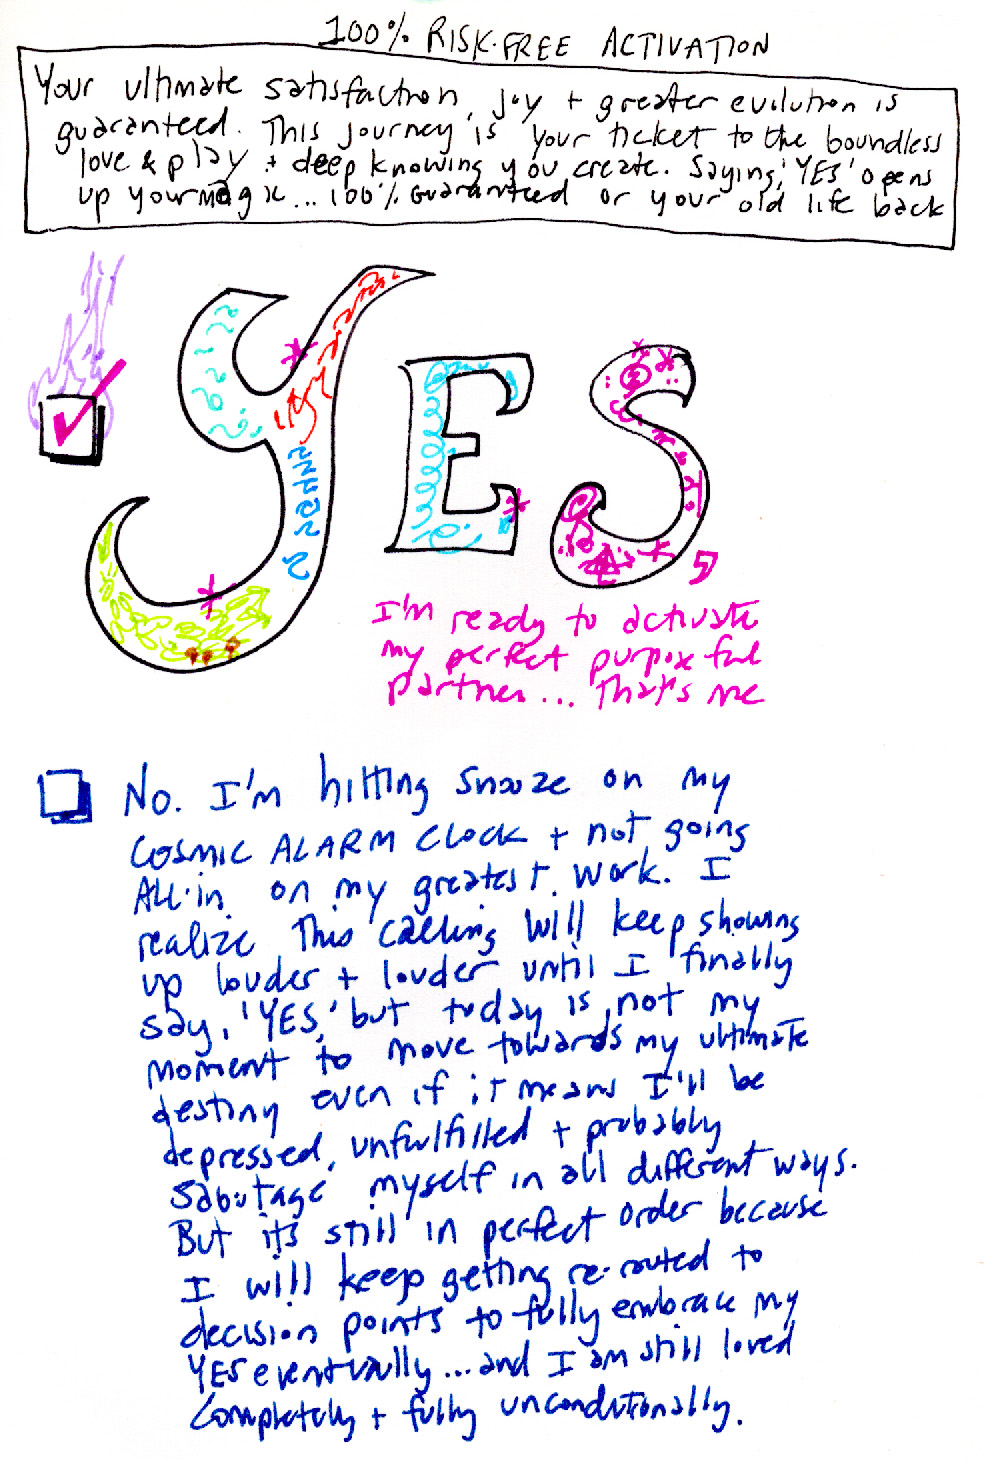 100% RISK-FREE ACTIVATION
Your ultimate satisfaction, joy + greater evolution is
guaranteed. This journey is your ticket to the boundless
love & play + deep knowing you create. Saying, 'YES' opens
up your magic... 100% Guaranteed or your old life back
YES,
I'm ready to activate
my perfect purposeful
partner... That's me
No. I'm hitting snooze on my
COSMIC ALARM CLOCK + not going
ALL-in on my greatest work. I
realize this calling will keep showing
up louder + louder until I finally
say, 'YES,' but today is not my
moment to move towards my ultimate
destiny even if it means I'll be
depressed, unfulfilled + probably
sabotage myself in all different ways.
But it's still in perfect order because
I will keep getting re-routed to
decision points to fully embrace my
YES eventually... and I am still loved
Completely + fully unconditionally.